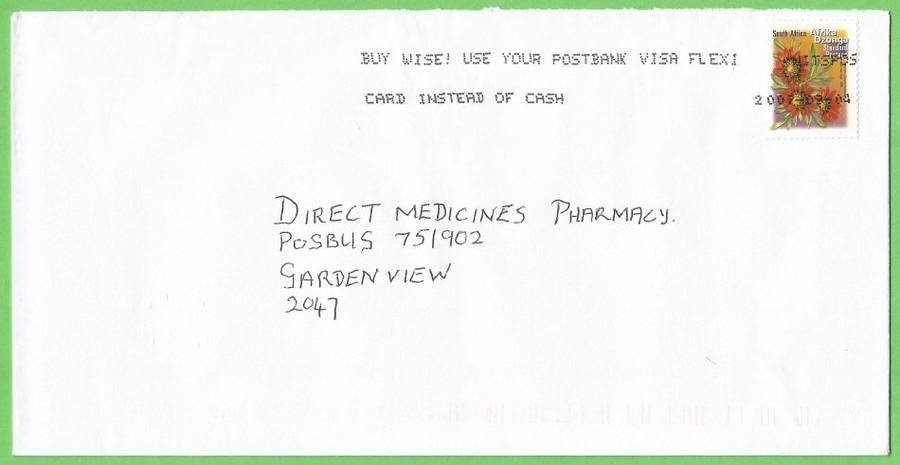 BUY WISE! USE YOUR POSTBANK VISA FLEXI
CARD INSTEAD OF CASH
South Africa
Afrika
Dzonga
Standard
DIRECT MEDICINES PHARMACY.
POSBUS 751902
GARDENVIEW
2047